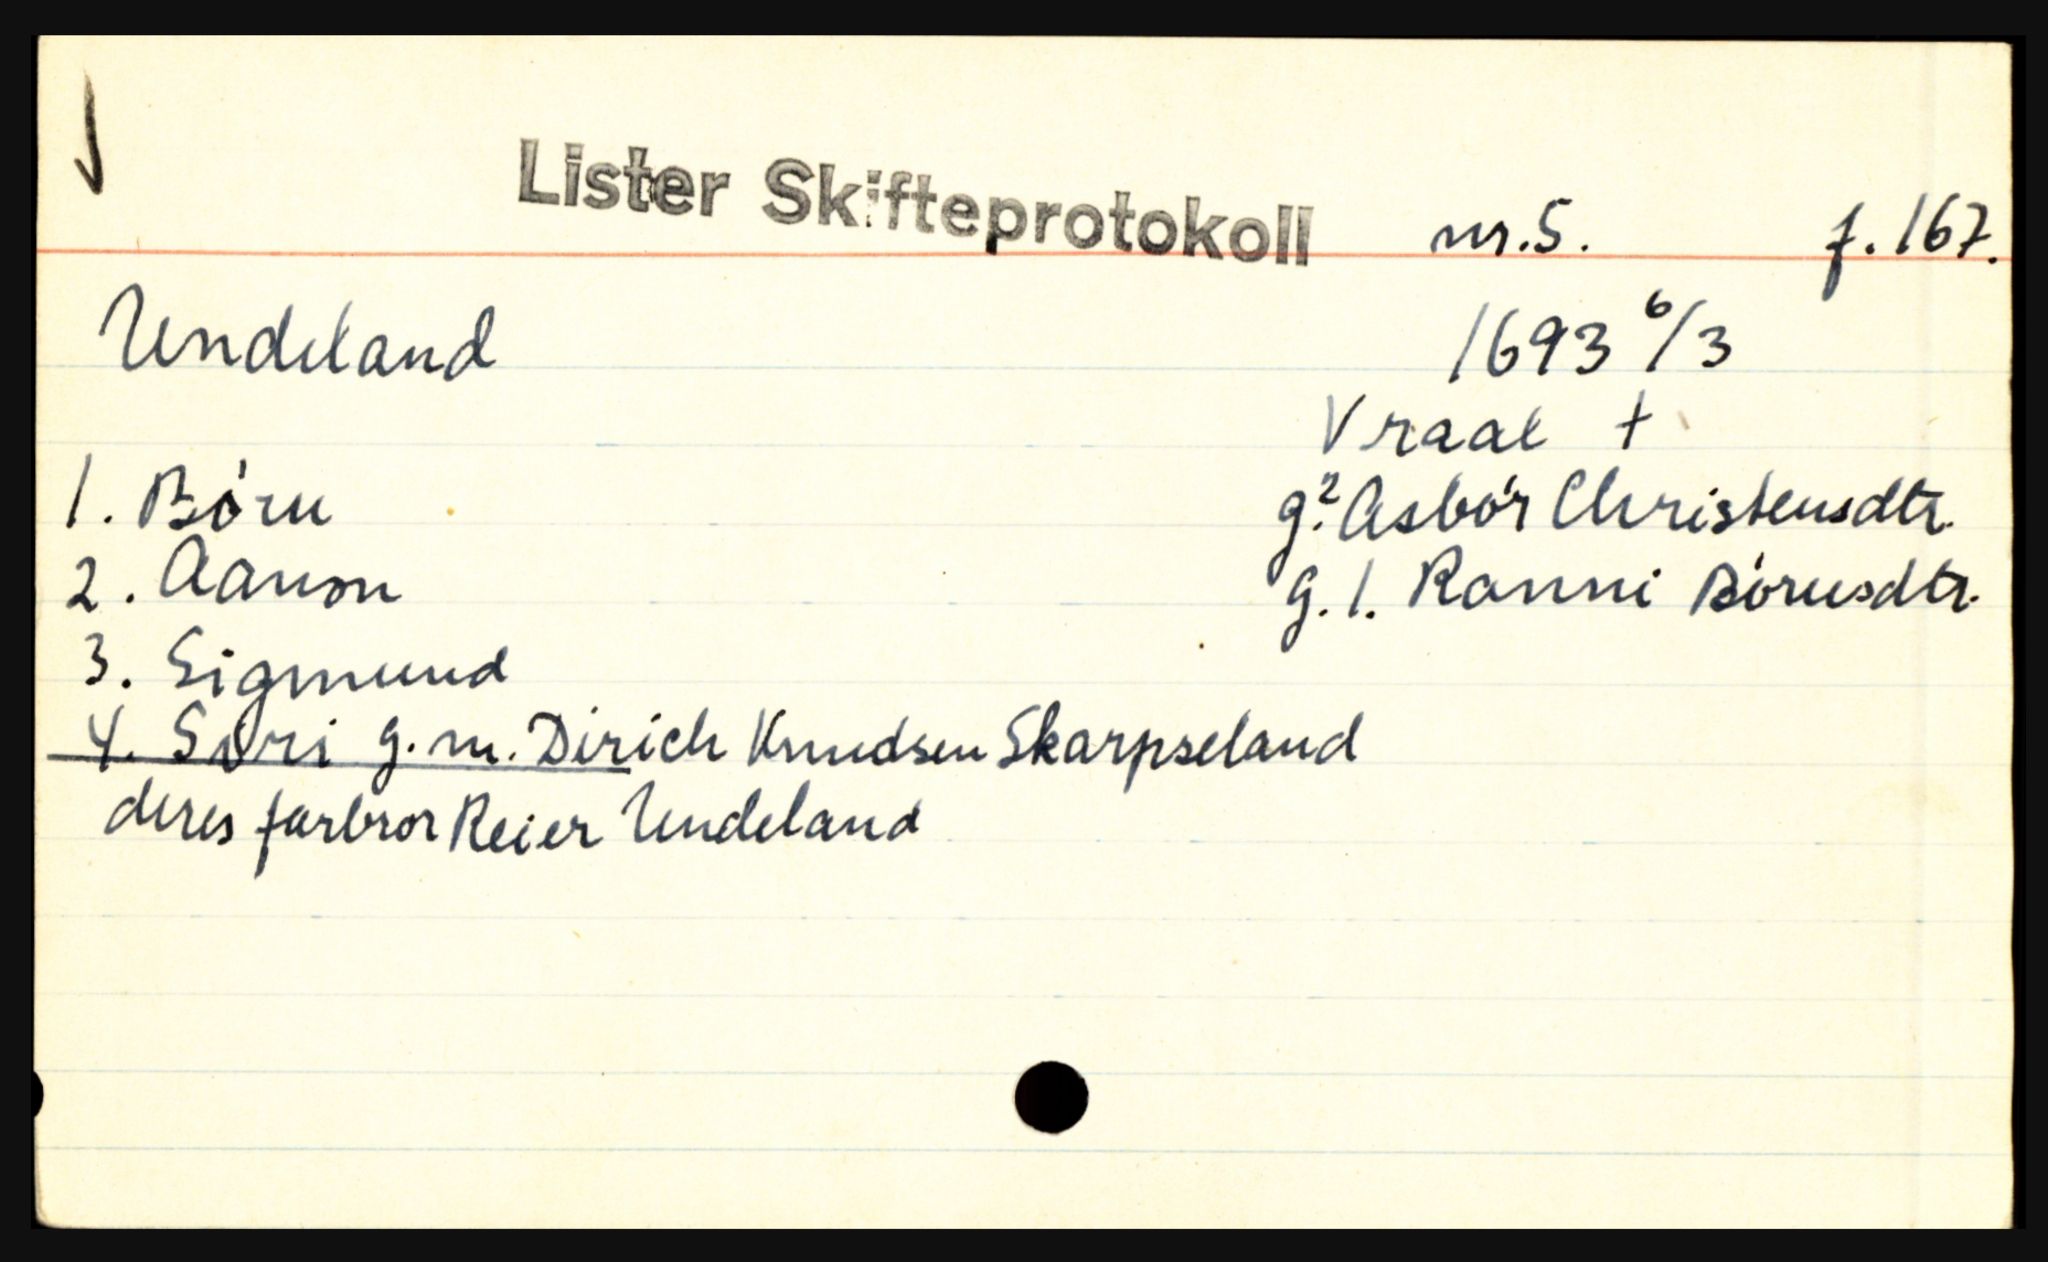 Lister Skifteprotokoll nr.5. f.167.
Undeland 1693 6/3
Vraal †
1. Børu g2. Asbør Christensdtr.
2. Aanon g.1. Ranni Børusdtr.
3. Sigmund
4. Siri g.m. Dirich Knudsen Skarpseland
deres farbror Reier Undeland